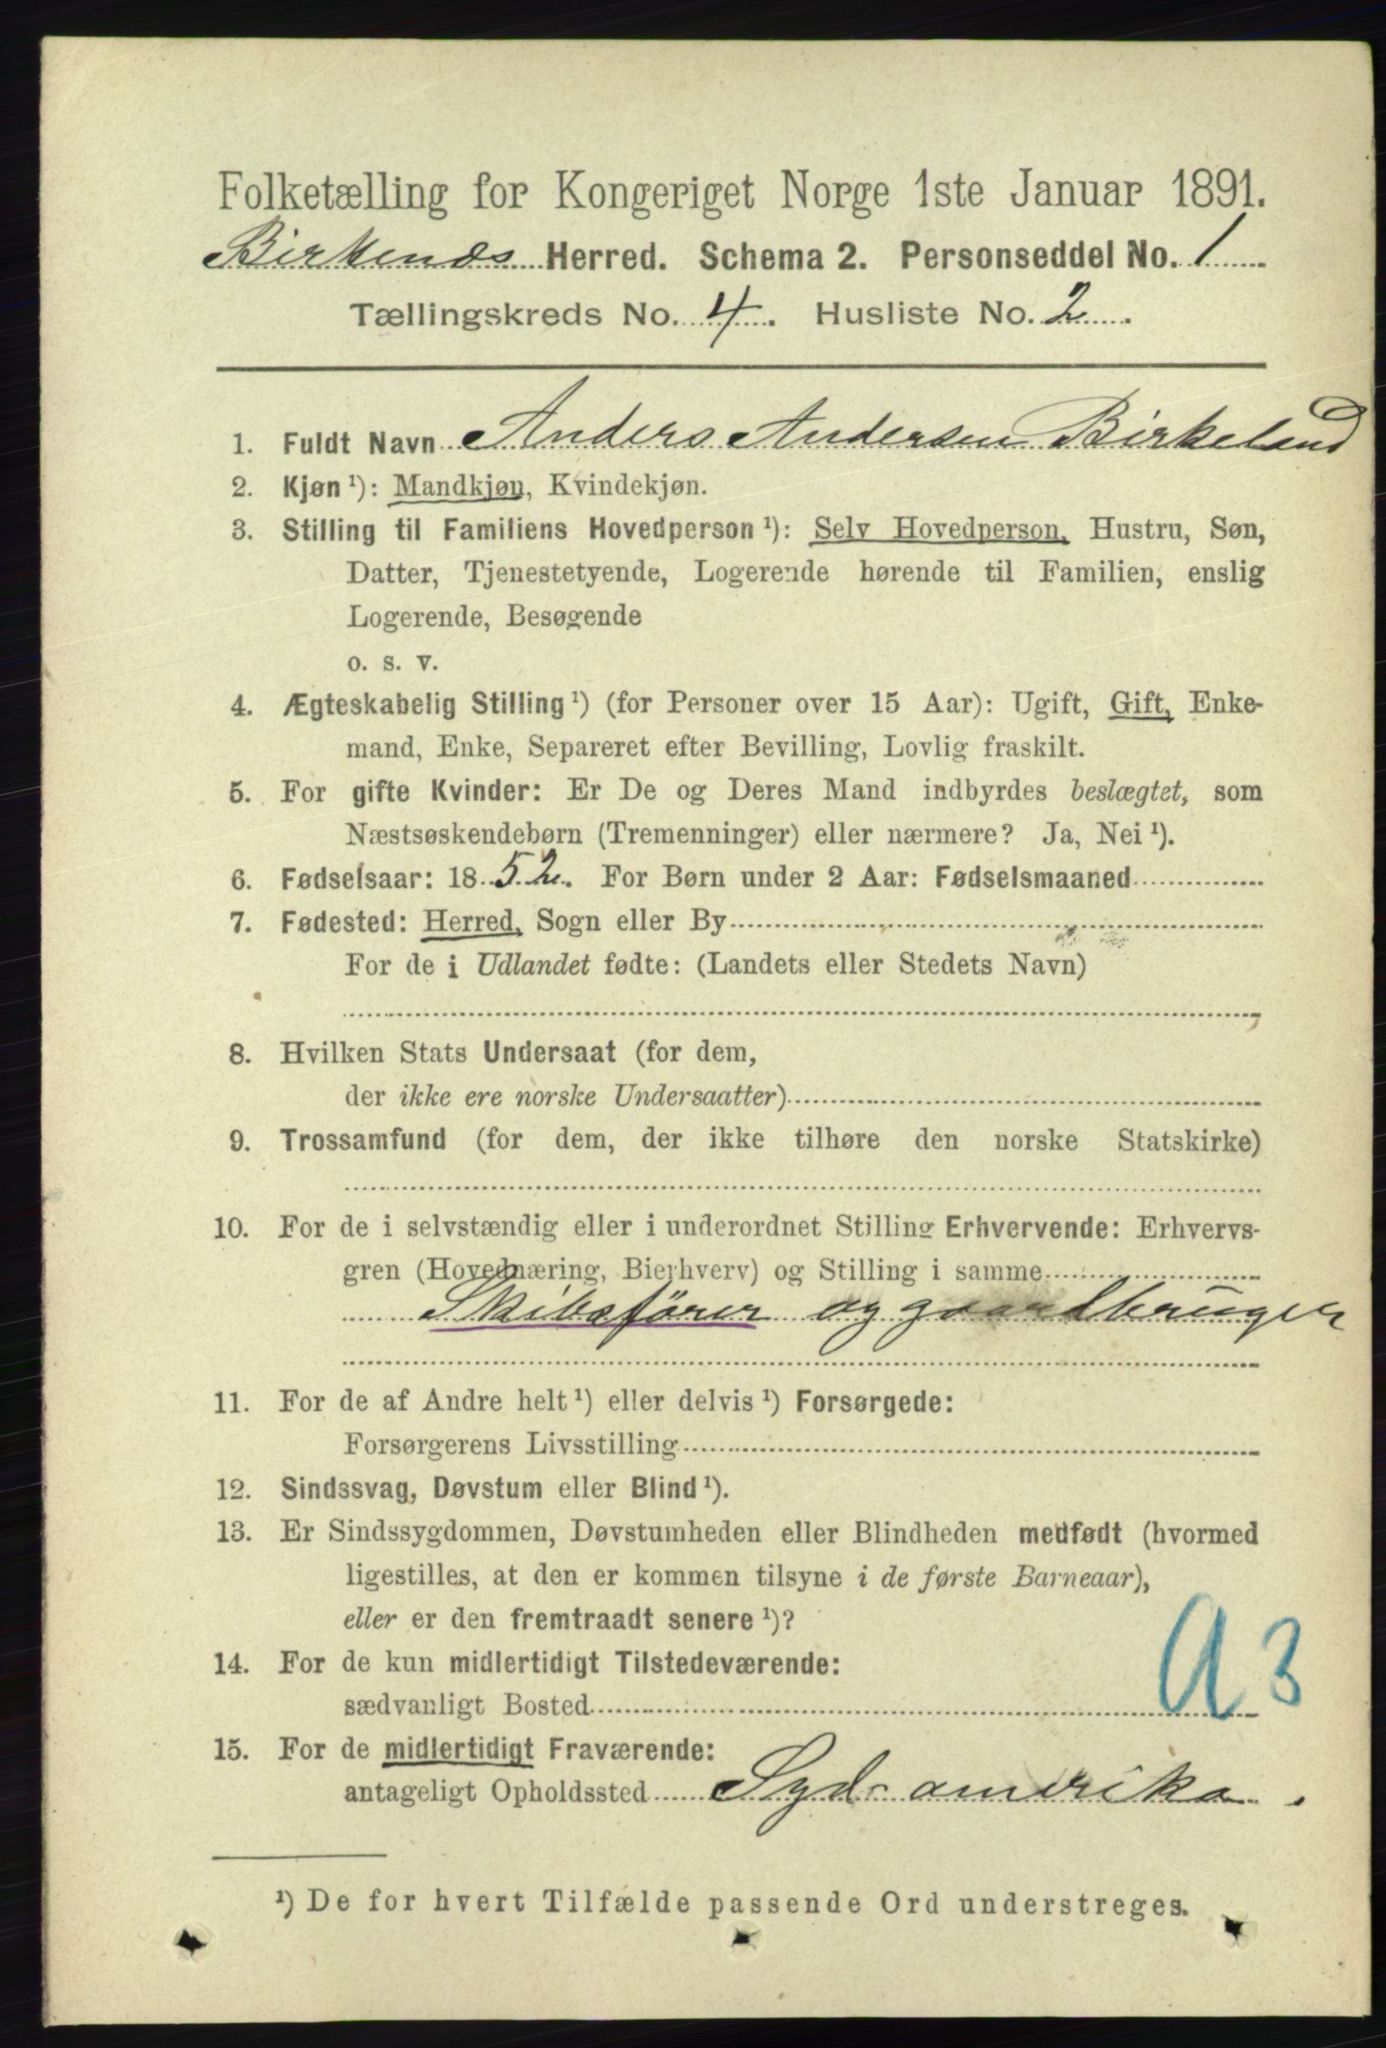 Folketælling for Kongeriget Norge 1ste Januar 1891.
Birkenæs Herred. Schema 2. Personseddel No. 1
Tællingskreds No. 4. Husliste No. 2.
1. Fuldt Navn Anders Andersen Birkeland
2. Kjøn ¹): Mandkjøn, Kvindekjøn.
3. Stilling til Familiens Hovedperson ¹): Selv Hovedperson, Hustru, Søn,
Datter, Tjenestetyende, Logerende hørende til Familien, enslig
Logerende, Besøgende
o. s. v.
4. Ægteskabelig Stilling ¹) (for Personer over 15 Aar): Ugift, Gift, Enke-
mand, Enke, Separeret efter Bevilling, Lovlig fraskilt.
5. For gifte Kvinder: Er De og Deres Mand indbyrdes beslægtet, som
Næstsøskendebørn (Tremenninger) eller nærmere? Ja, Nei ¹).
6. Fødselsaar: 1852. For Børn under 2 Aar: Fødselsmaaned
7. Fødested: Herred, Sogn eller By
For de i Udlandet fødte: (Landets eller Stedets Navn)
8. Hvilken Stats Undersaat (for dem,
der ikke ere norske Undersaatter)
9. Trossamfund (for dem, der ikke tilhøre den norske Statskirke)
10. For de i selvstændig eller i underordnet Stilling Erhvervende: Erhvervs-
gren (Hovednæring, Bierhverv) og Stilling i samme
Skibsfører og gaardbruger
11. For de af Andre helt ¹) eller delvis ¹) Forsørgede:
Forsørgerens Livsstilling
12. Sindssvag, Døvstum eller Blind ¹).
13. Er Sindssygdommen, Døvstumheden eller Blindheden medfødt (hvormed
ligestilles, at den er kommen tilsyne i de første Barneaar),
eller er den fremtraadt senere ¹)?
14. For de kun midlertidigt Tilstedeværende:
sædvanligt Bosted
a 3
15. For de midlertidigt Fraværende:
antageligt Opholdssted Syd-amerika.
¹) De for hvert Tilfælde passende Ord understreges.